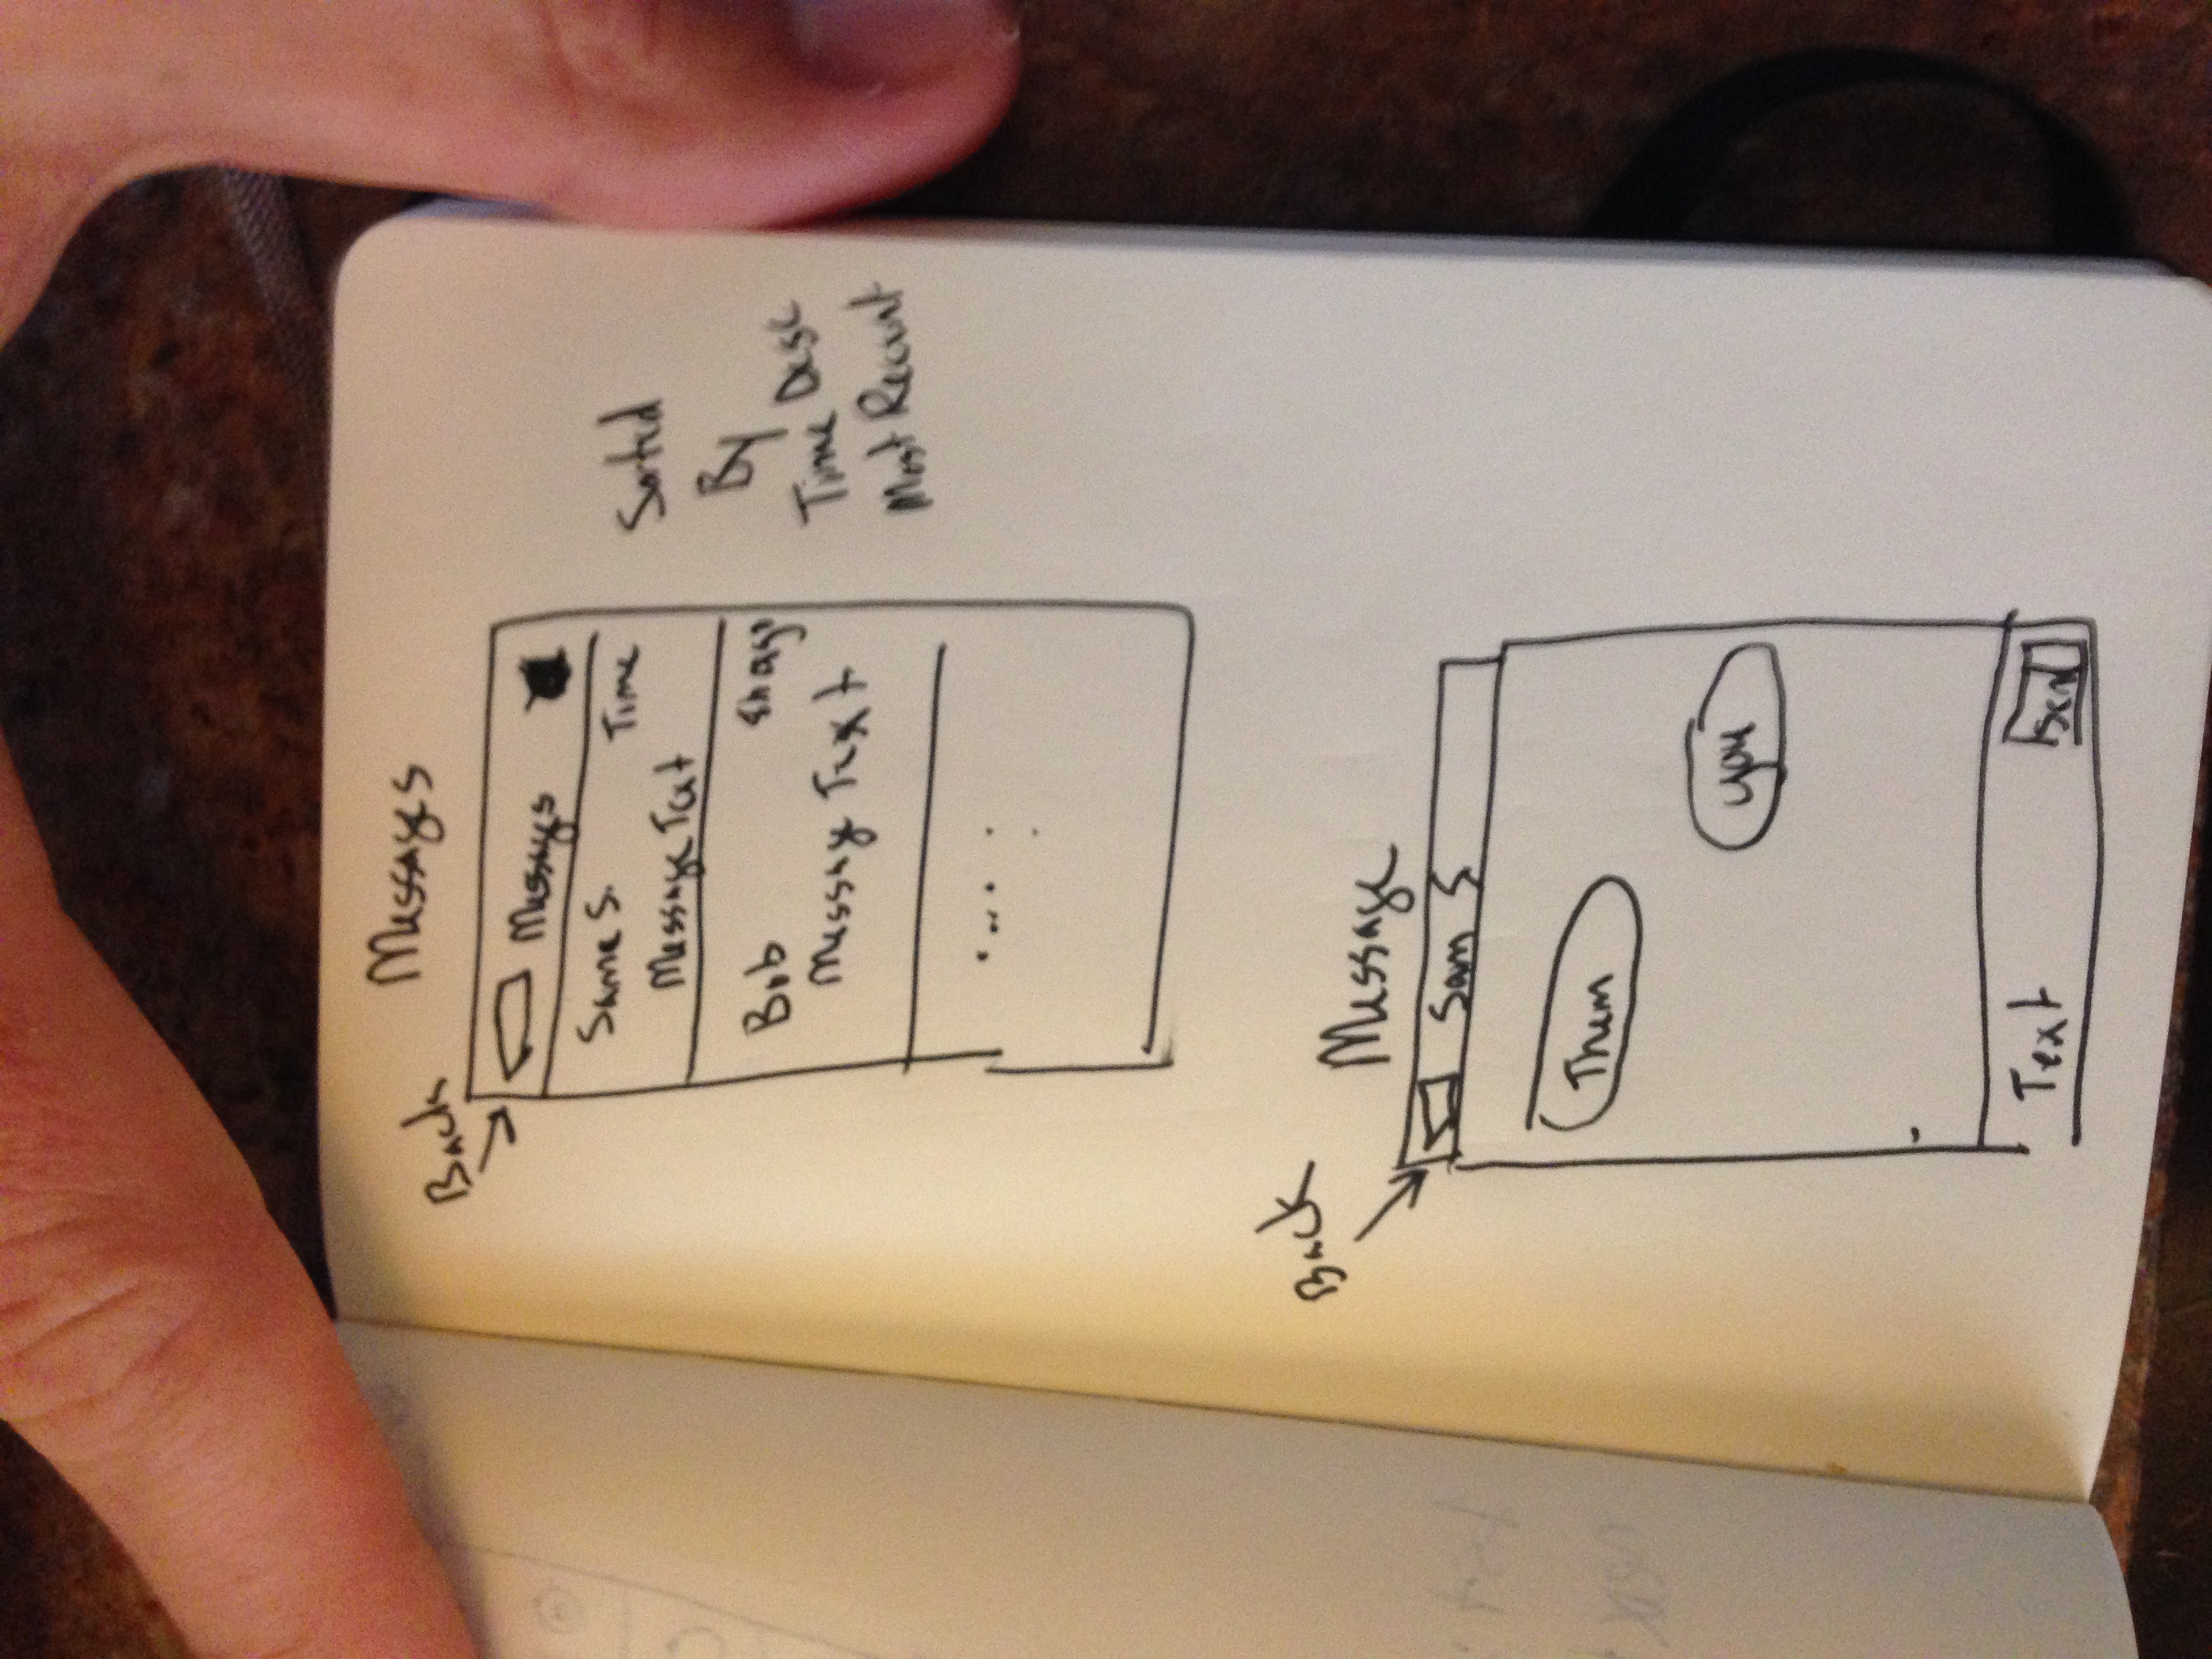 Messages
Back
Messages
Same S.
Time
Message Text
Bob
Message Text
Sorted
By
Time Desc
Most Recent
Back
Message
Sam S
Them
you
Text
Send